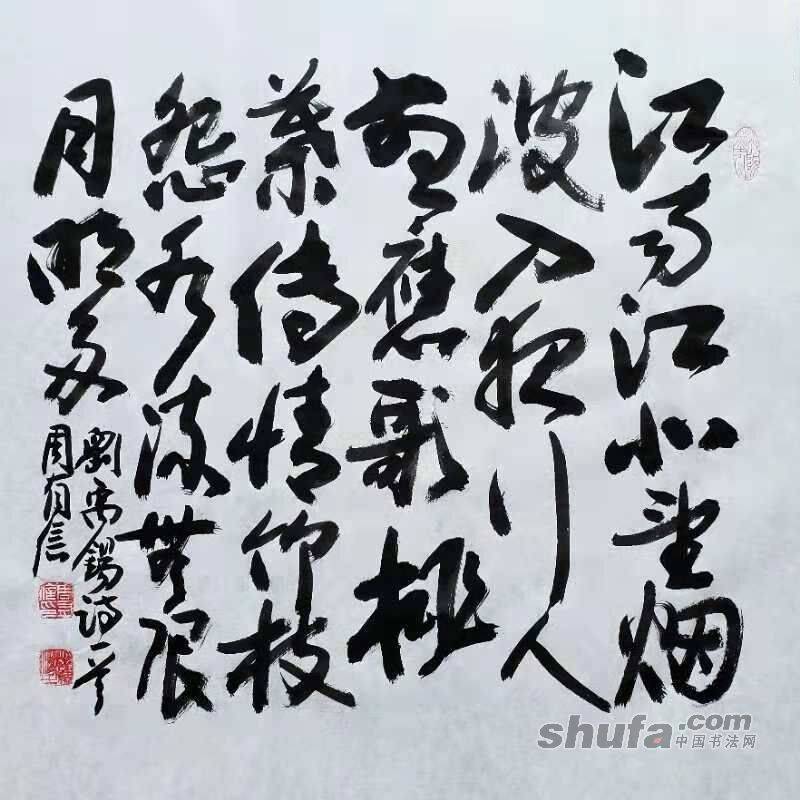 江南江北望烟
波入夜行人
相應歌桃
葉傳情竹枝
怨水流無限
月明多
劉禹錫诗一首
周有信
shufa.com
中国书法网